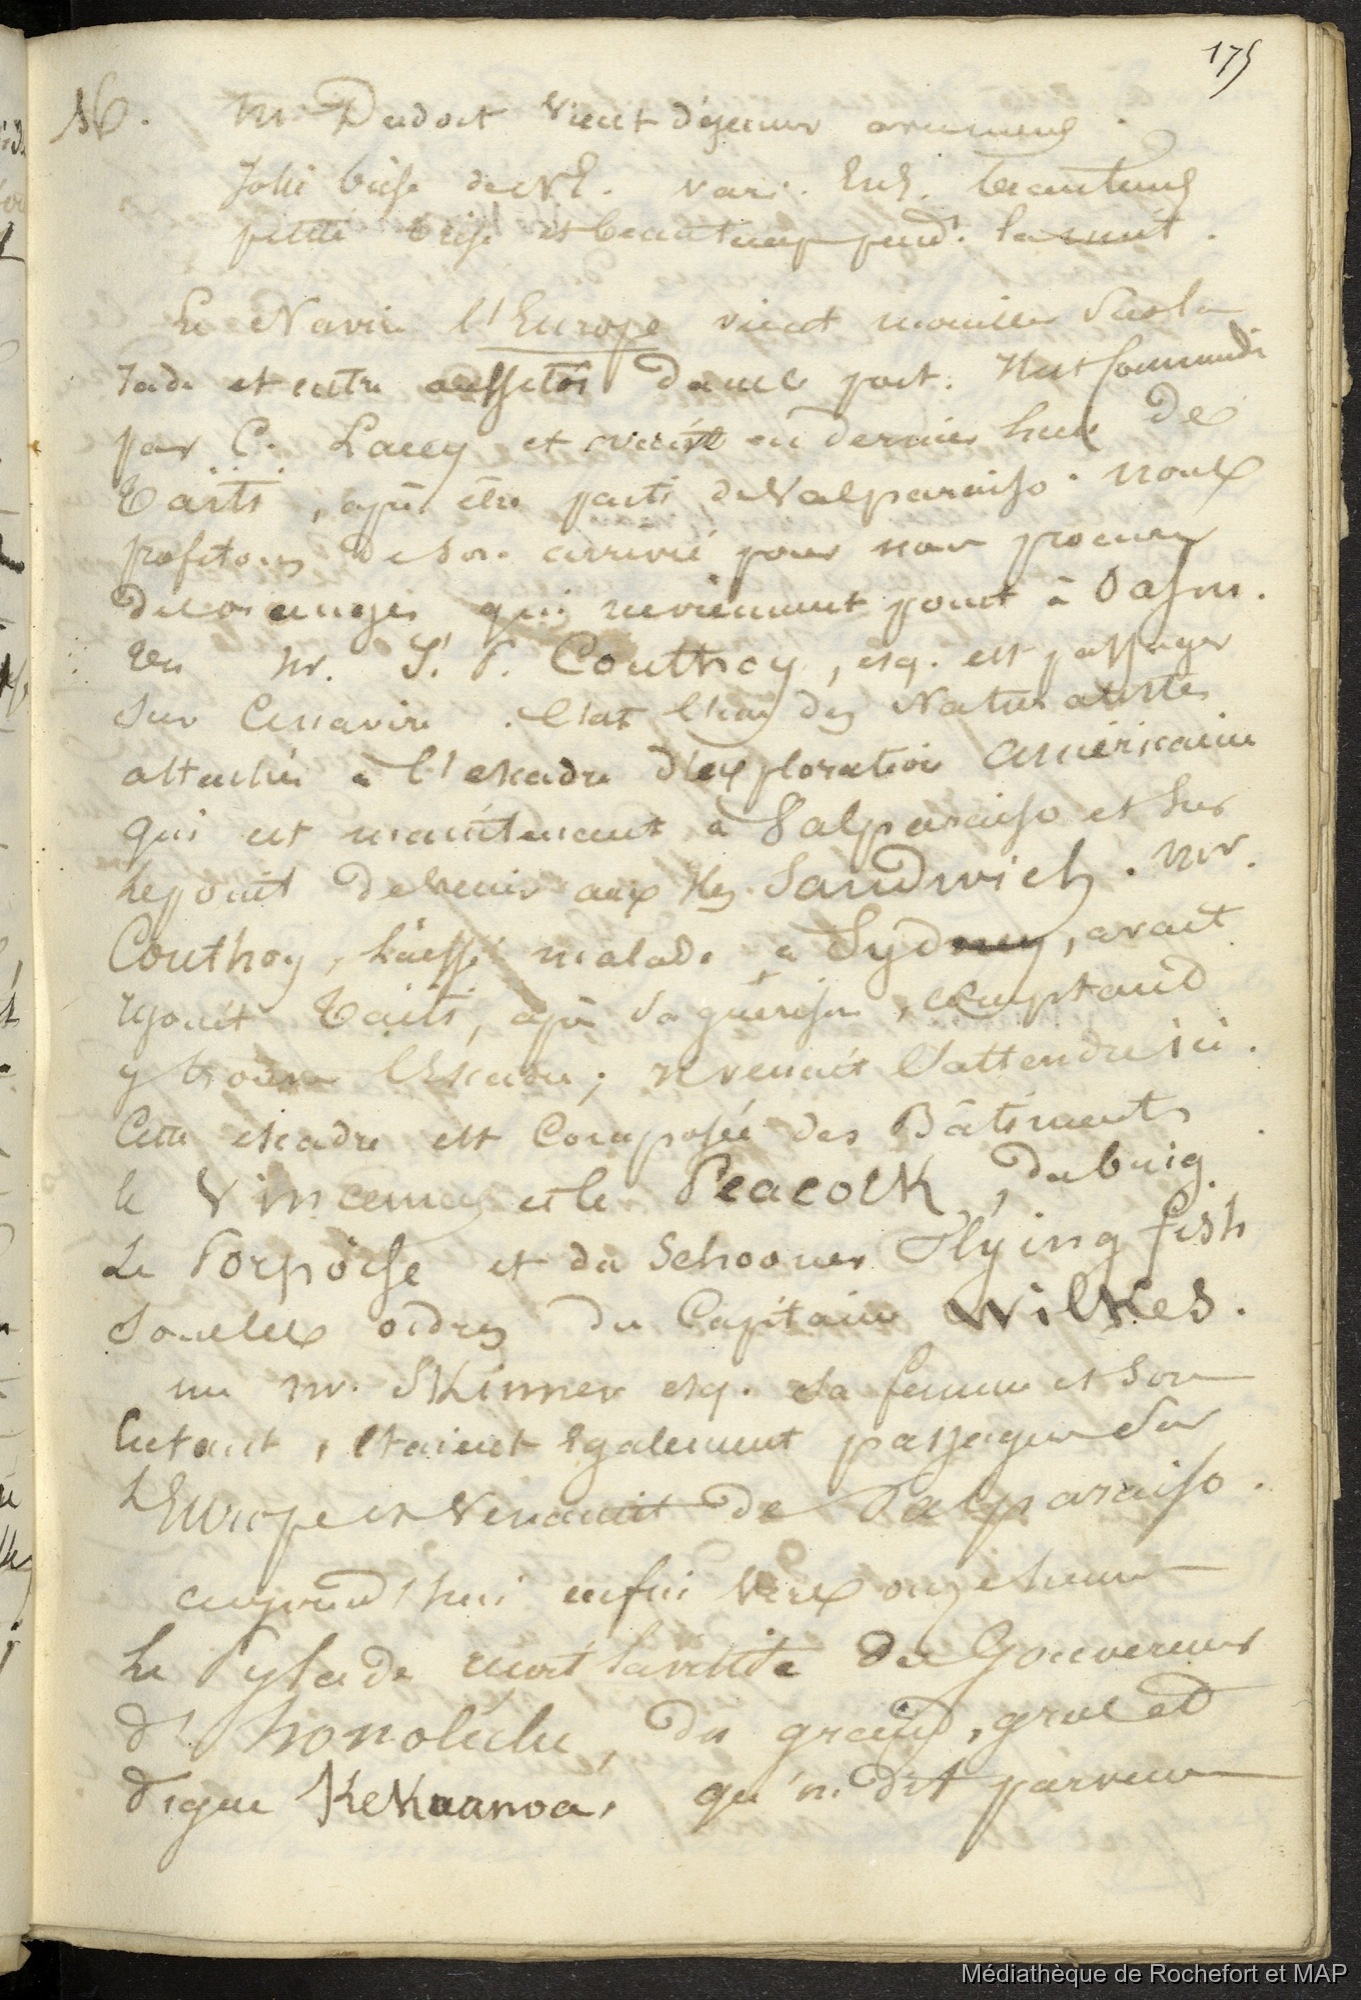 175
16. Mr Dudoit vient déjeuner avec nous.
Jolie brise de NE. vari. Ens. beau temps
petite brise et beau temps pend. la nuit.
Le Navire l'Europe vient mouiller sur la
rade et entre aussitôt dans le port. Il est Commandé
par C. Lacey et vient en dernier lieu de
Taïti, après être parti de Valparaiso. nous
profitons de son arrivée pour nous procurer
des oranges qui ne viennent point à Oahu.
Un Mr. J. P. Couthoy, esq. est passager
sur ce navire. C'est l'un des Naturalistes
attachés à l'escadre d'exploration américaine
qui est maintenant à Valparaiso et sur
le point de venir aux Iles Sandwich. Mr.
Couthoy, laissé malade à Sydney, avait
rejoint Taiti, après sa guérison, comptant
y trouver l'Escadre; il venait l'attendre ici.
Cette escadre est composée des Bâtiments
le Vincennes et le Peacock, du brig
Le Porpoise et du Schooner Flying fish
sous les ordres du Capitaine Wilkes.
un Mr. Skinner esq. sa femme et son
enfant, étaient également passagers sur
L'Europe et venaient de Valparaiso.
aujourd'hui enfin vers onze heures
la Pylade reçoit la visite du Gouverneur
d'honolulu, du grand, gros et
digne Kekuanoa, qu'on dit parvenu
Médiathèque de Rochefort et MAP